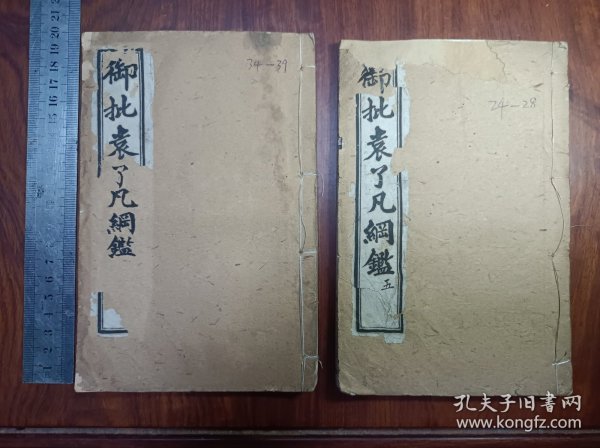 御批袁了凡綱鑑
34-39
御批袁了凡綱鑑
五
24-28
1 2 3 4 5 6 7 8 9 10 11 12 13 14 15 16 17 18 19 20 21
孔夫子旧书网
www.kongfz.com